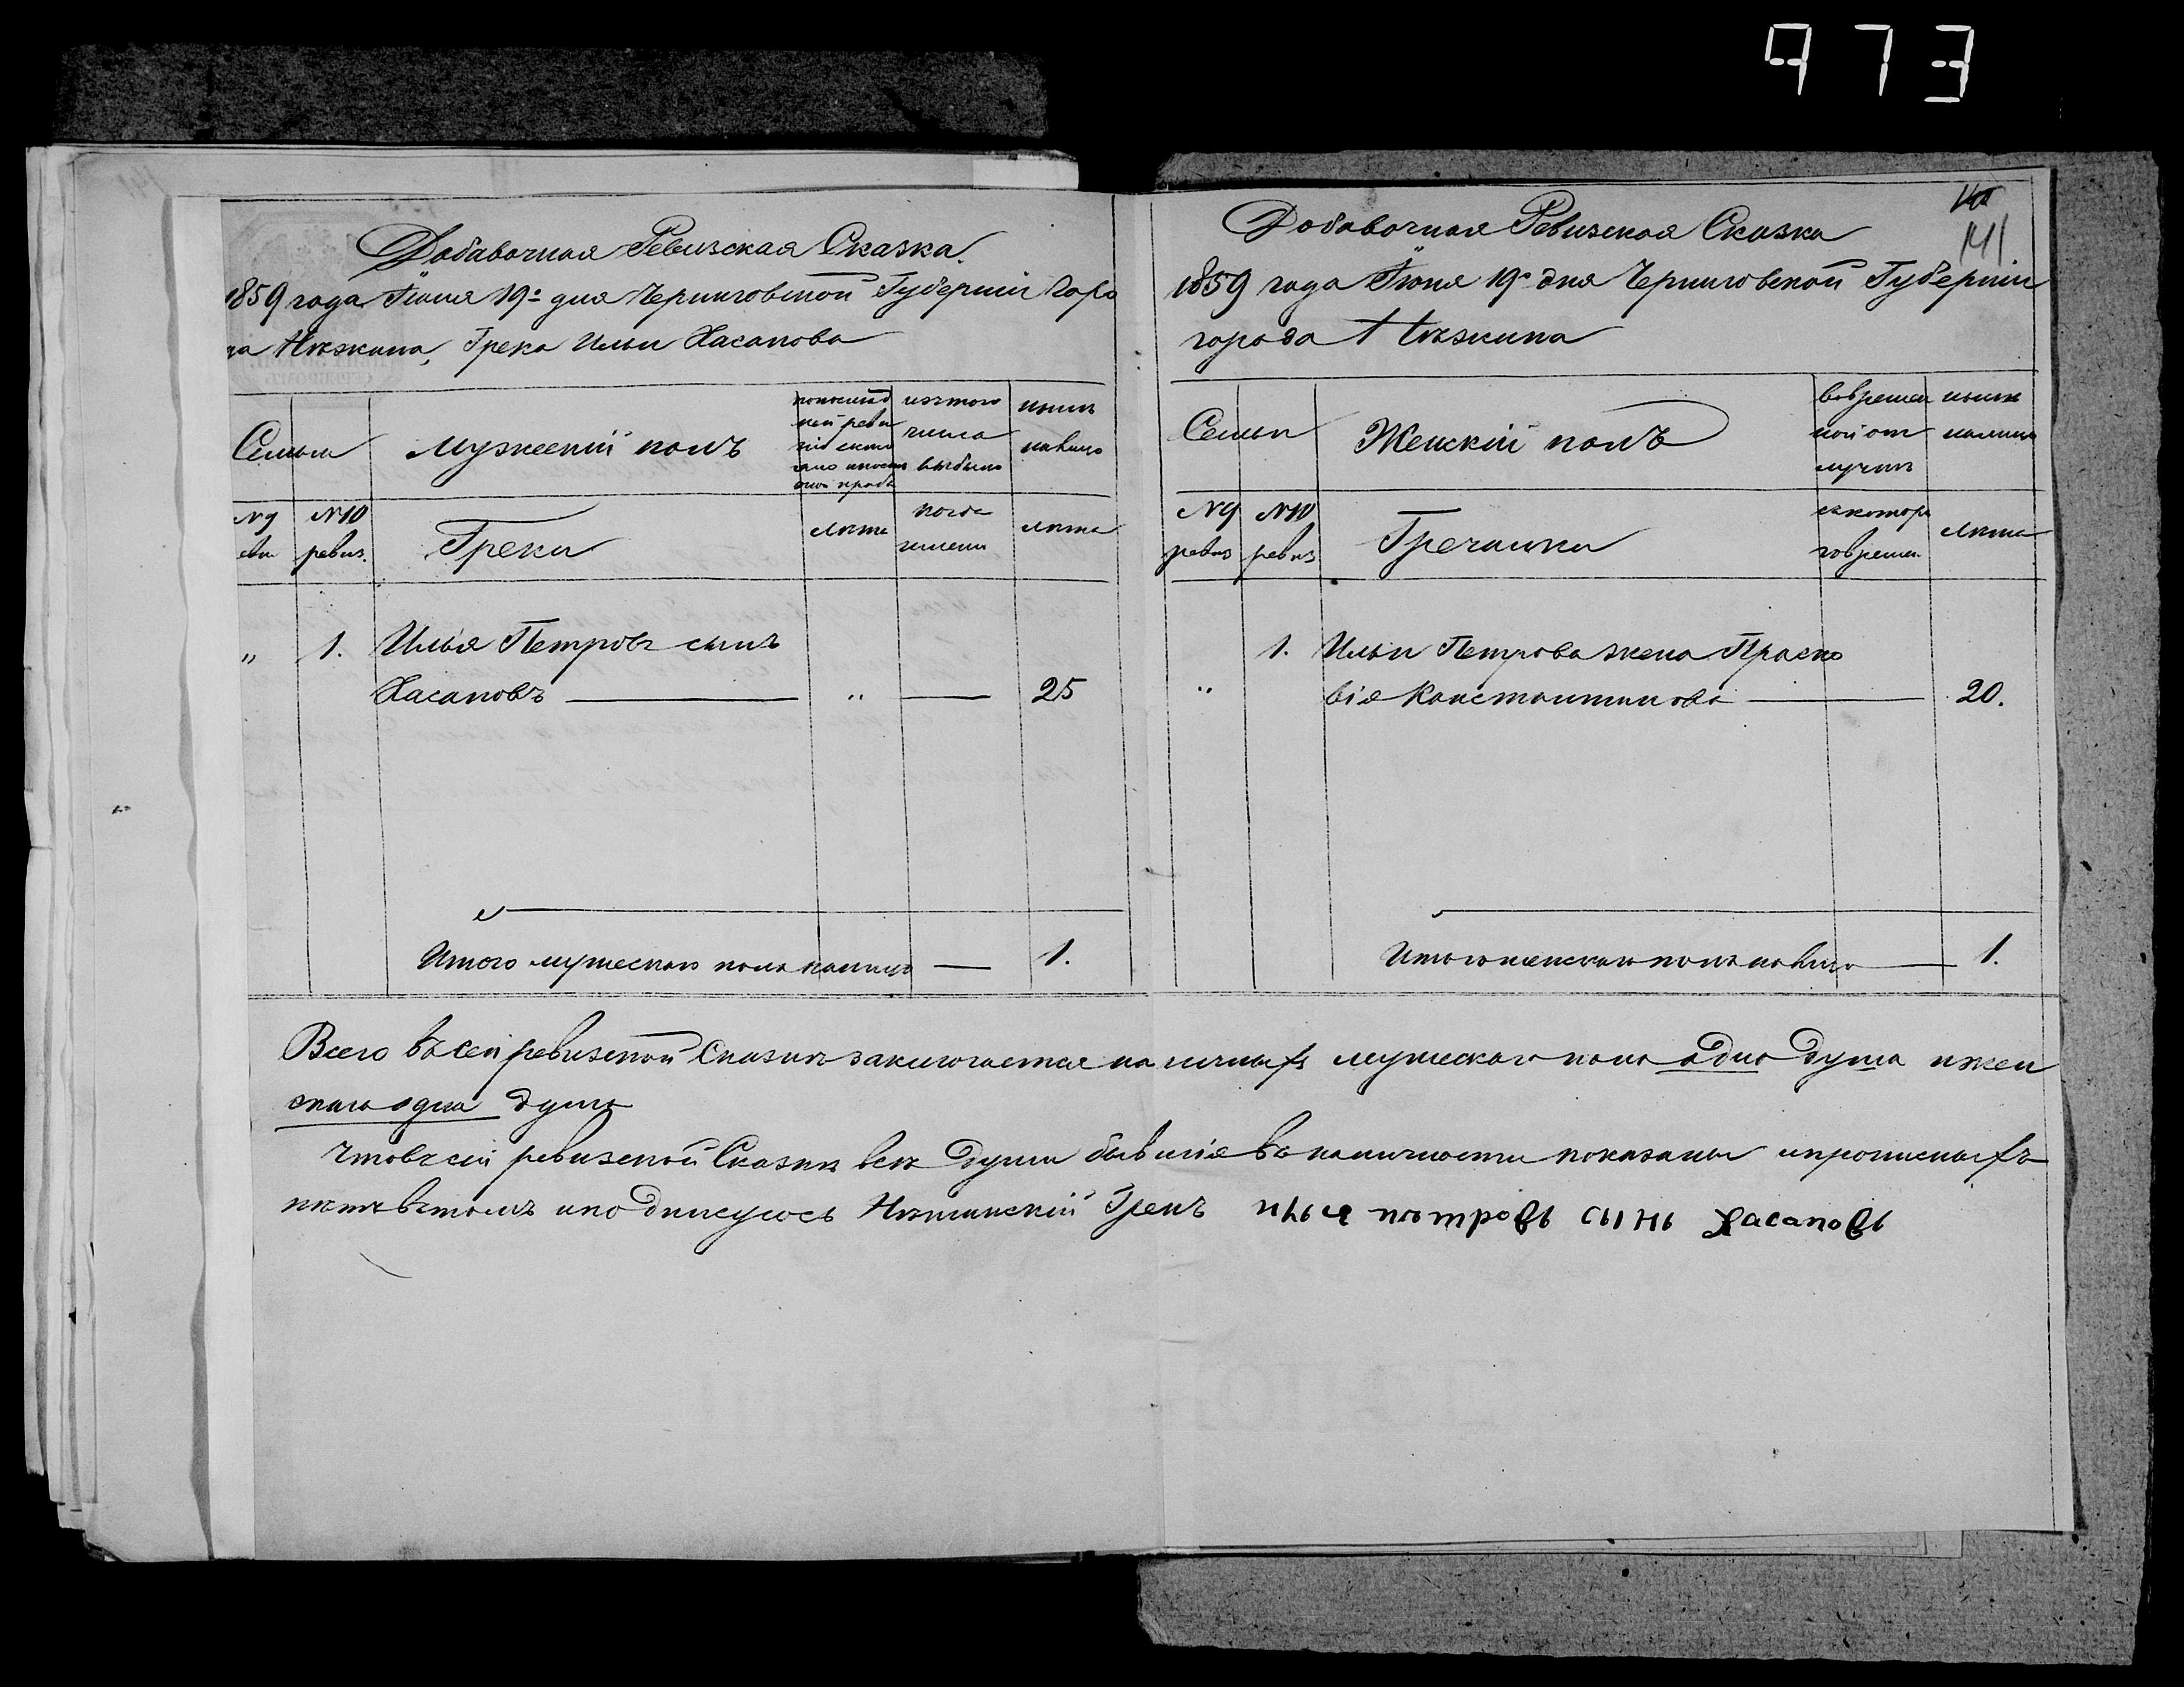 973
Добавочная Ревизская Сказка.
1859 года Іюня 19º дня Черниговской Губерніи Горо
да Нѣжина, Грека Ильи Хасапова
Семьи
Мужескій полъ
по послѣд
ней реви
зіи состо
яло и послѣ
оной приб
изъ того
числа
выбыло
нынѣ
на лицо
№ 9
№ 10
ревиз.
Греки
лѣта
когда
именно
лѣта
" 1. Илья Петровъ сынъ
Хасаповъ — " — 25
Итого мужескаго пола на лицо — 1.
141
Добавочная Ревизская Сказка
1859 года Іюня 19º дня Черниговской Губерніи
города Нѣжина
Семьи
Женскій полъ
во времен
ной от
лучкѣ
нынѣ
на лицо
№ 9
ревиз
№ 10
ревиз
Гречанки
съ котора
го времен
лѣта
1. Ильи Петрова жена Праско
" вія Константинова — 20.
Итого женскаго пола на лицо — 1.
Всего въ сей ревизской Сказкѣ заключается наличныхъ мужескаго пола одна душа и жен
скаго одна душа
Что въ сей ревизской Сказкѣ всѣ души бывшія въ наличности показаны и прописныхъ
нѣтъ въ томъ и подписуюсь Нѣжинскій Грекъ илья петровъ сынъ Хасаповъ